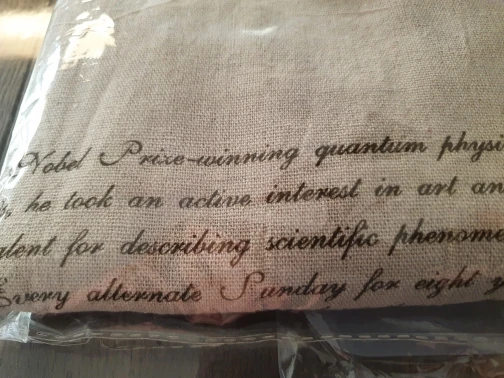 Nobel Prize-winning quantum physi
he took an active interest in art an
alent for describing scientific phenome
Every alternate Sunday for eight y